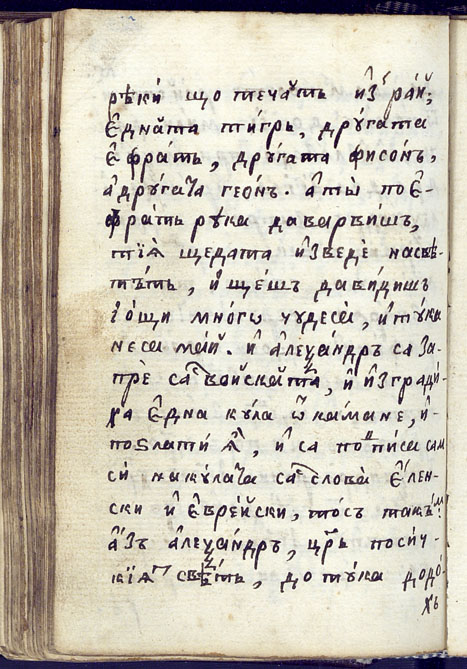 рѣки́ що теча́тъ и҆з̾ ра́й;
є҆дна́та ти́гръ, дрꙋ́гата
є҆фра́тъ, дрꙋ́гата фисо́нъ,
а҆ дрꙋ́гата гео́нъ. а҆ ты̀ по є҆-
фра́тъ рѣ́ка да варви́шъ,
тїѧ̀ ще да та и҆зведѐ на свѣ-
тътъ, и҆ ще́шъ да ви́дишъ
і҆ о́щи мно́гѡ чꙋдеса̀, и҆ тꙋ́ка
неса ма́й. и҆ а҆леѯа́ндръ са за-
прѐ са во́йската, и҆ и҆згради́-
ха є҆дна кꙋ́ла ѿ ка́мане, и҆-
позлати́ ѧ҆̀, и҆ са подписа сам
си́ на кꙋлата са слова̀ є҆́лен-
ски и҆ є҆вре́йски, то́съ такъ́м:
а҆́зъ а҆леѯа́ндръ, цр҃ь по си́ч-
кїѧт свѣ́тъ, до тꙋ́ка додо́-
хъ